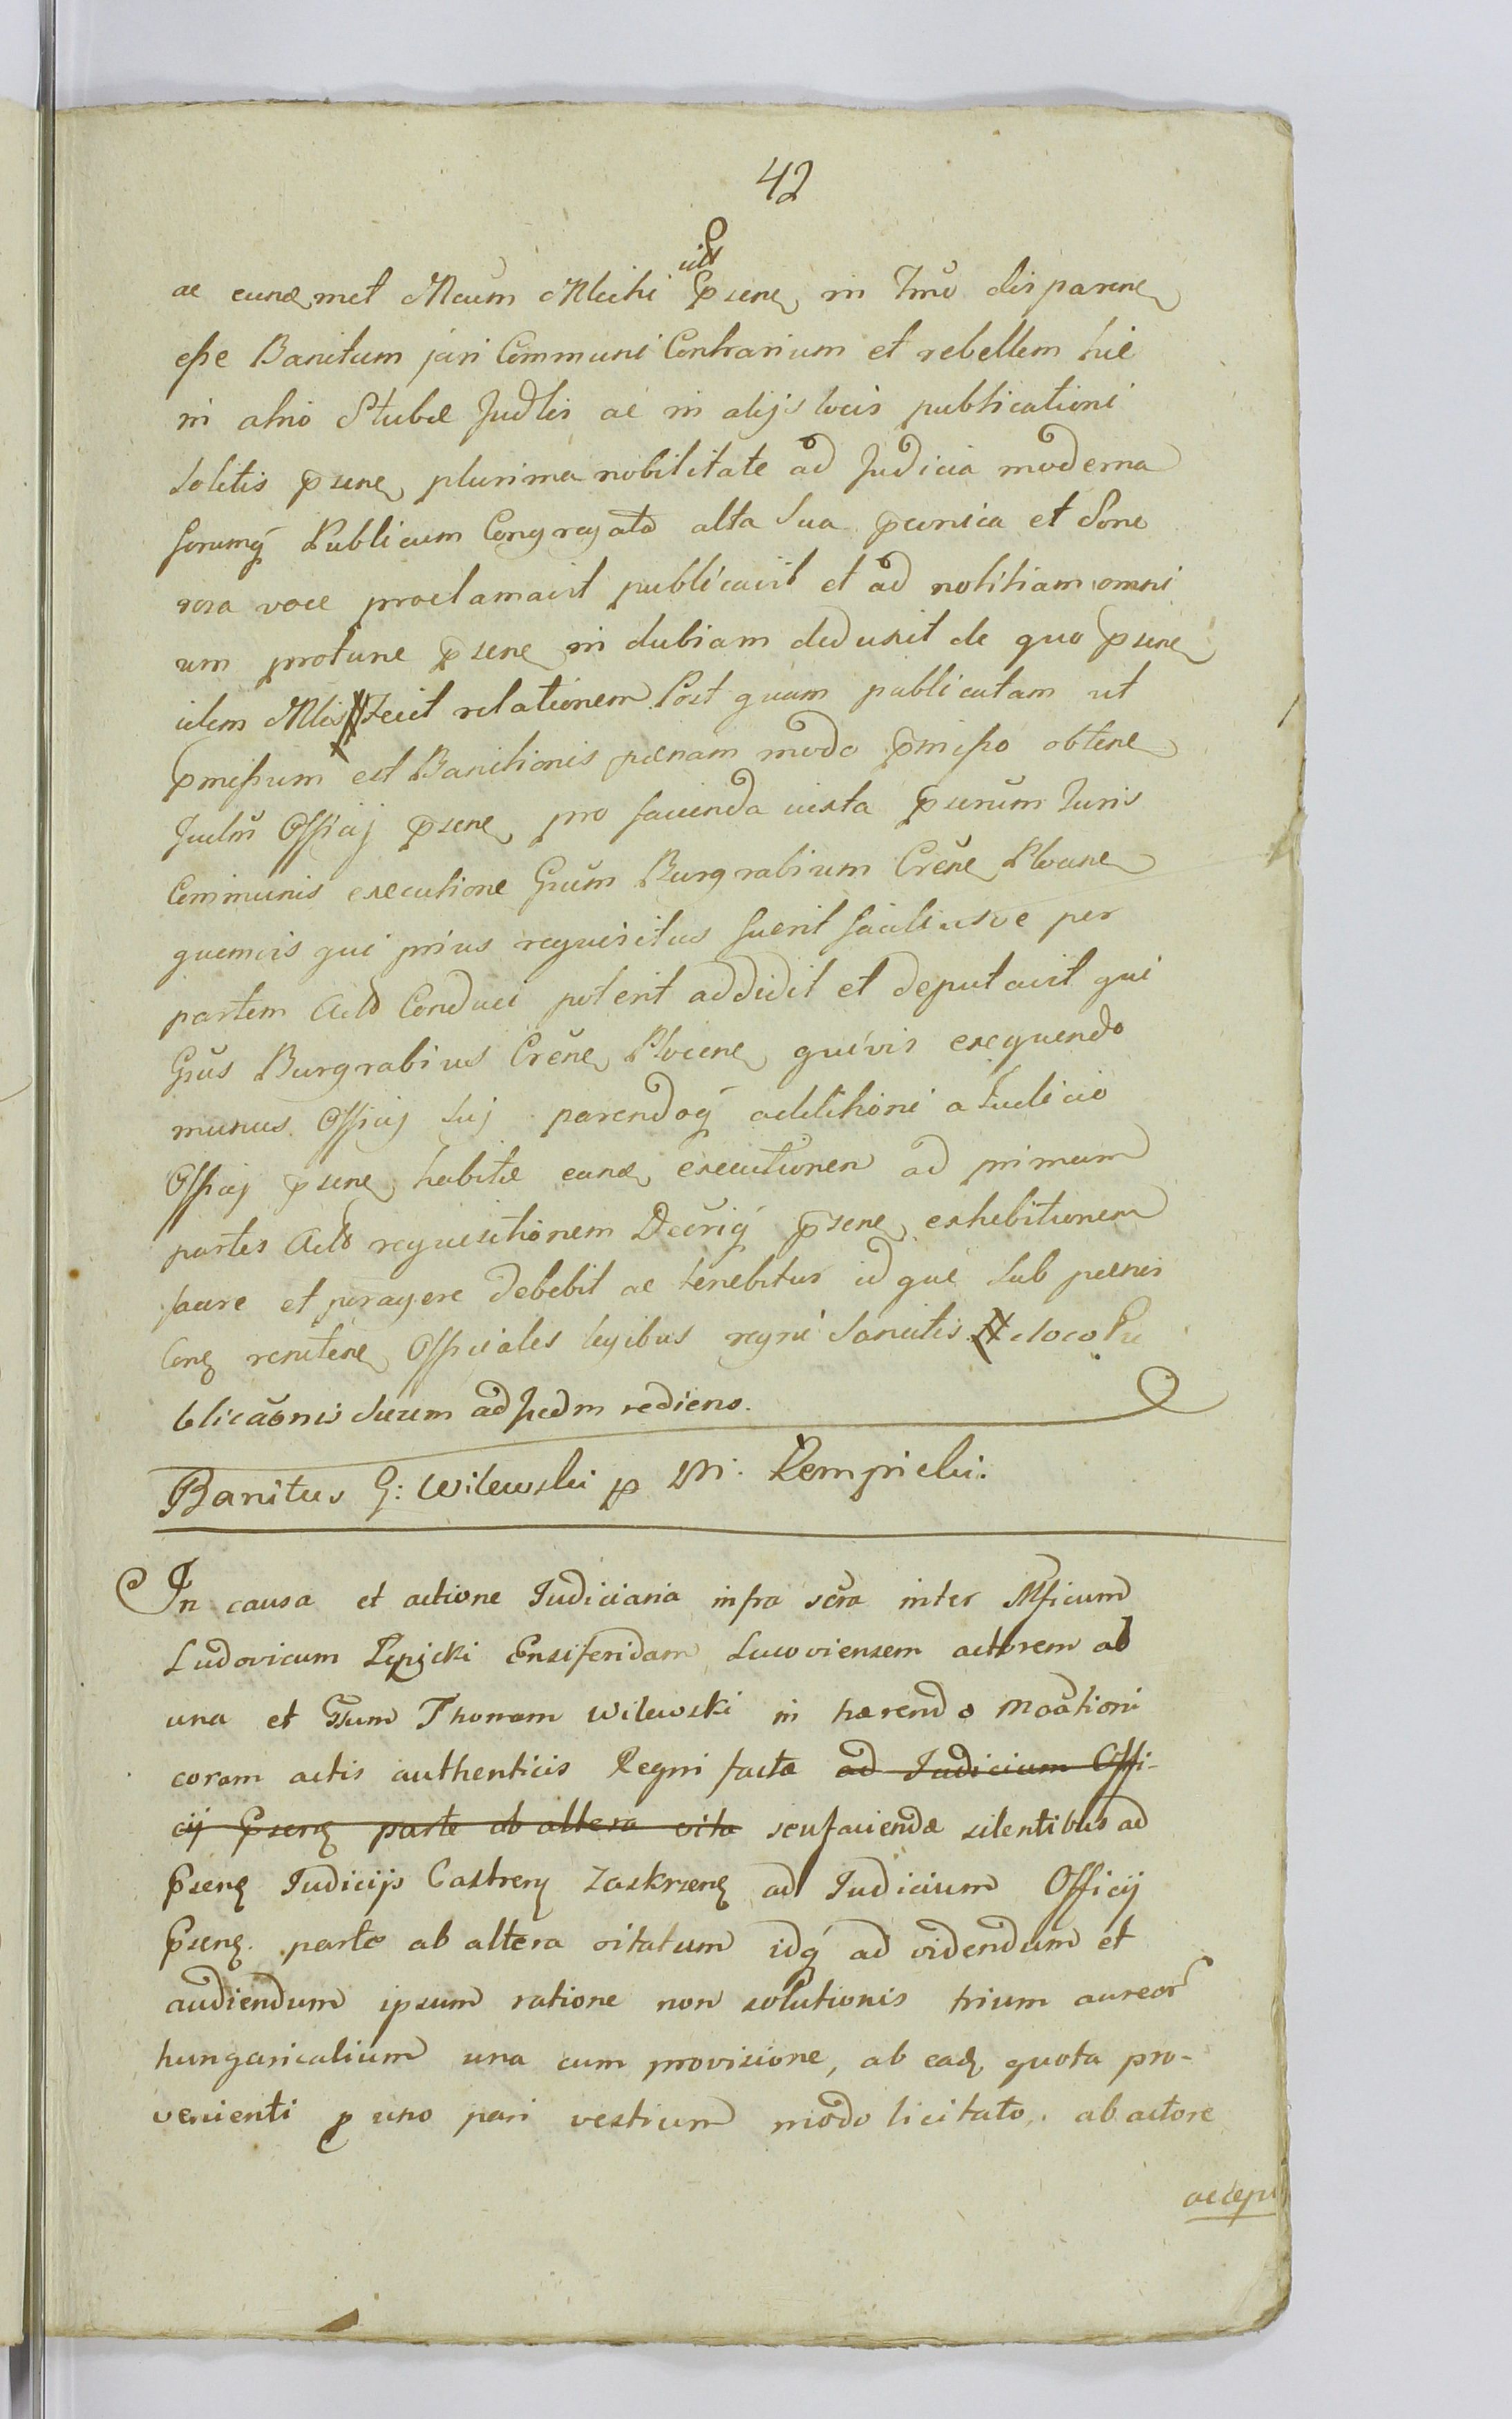 42
ac eund met Mcum Mlchi uti Psene in Tmo disparene
esse Banitum juri Communi Contrarium et rebellem hic
in atrio Stubæ Judlis ac in alijs locis publicationi
solitis psene plurima nobilitate ad Judicia moderna
forumq Publicum Congregata alta sua et Sono
rosa voce proclamavit publicavit et ad notitiam omni
um protunc psene in dubiam deduxit de quo psene
idem Mlis fecit relationem Post quam publicatam ut
pmissum est Banitionis pœnam modo pmisso obtene
Judm Officij psene pro facienda iuxta Iuris
Communis executione Gsum Burgrabium Crene Plocene
quemvis qui prius requisitus fuerit faciliusve per
partem Acto Conduci poterit addidit et deputavit qui
Gsus Burgrabius Crene Plocene quivis exequendo
munus Officij sui parendoq additioni a Iudicio
Officij psene habitæ eand executionem ad primam
partis Acto requisitionem Decriq psene exhibitionem
facere et peragere debebit ac tenebitur id que sub pœnis
Conz renitene Officiales legibus regni sancitis e loco Pu
blicaonis suum ad Judm rediens.
Banitus G: Wilewski p M. Rempicki.
In causa et actione Iudiciaria infra scra inter Mficum
Ludovicum Ensiferidam actorem ab
una et Gsum Thomam Wilewski in hærendo Moationi
coram actis authenticis Regni facta ad Iudicium Offi-
cij Psene parte ab altera cita seu faciendæ silentibus ad
Psene Iudicijs Castren Zaskrzene ad Iudicium Officij
Psene parte ab altera citatum idq ad videndum et
audiendum ipsum ratione non solutionis trium aureor
hungaricalium una cum provisione, ab ead quota pro-
venienti p uno pari vestium modo licitato. ab actore
accep